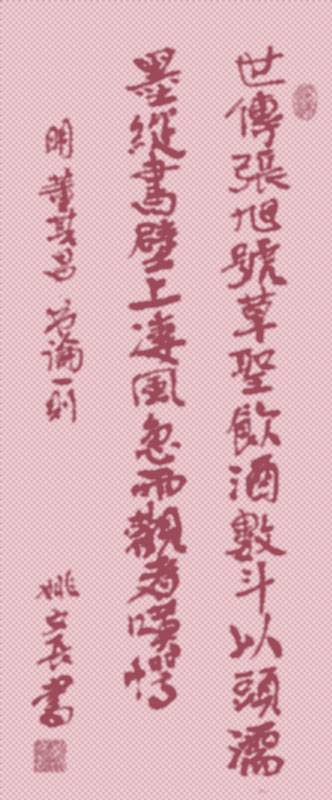 世傳張旭號草聖飲酒數斗以頭濡
墨縱書壁上淒風急雨觀者嘆愕
明 董其昌 書論一則
姚 書